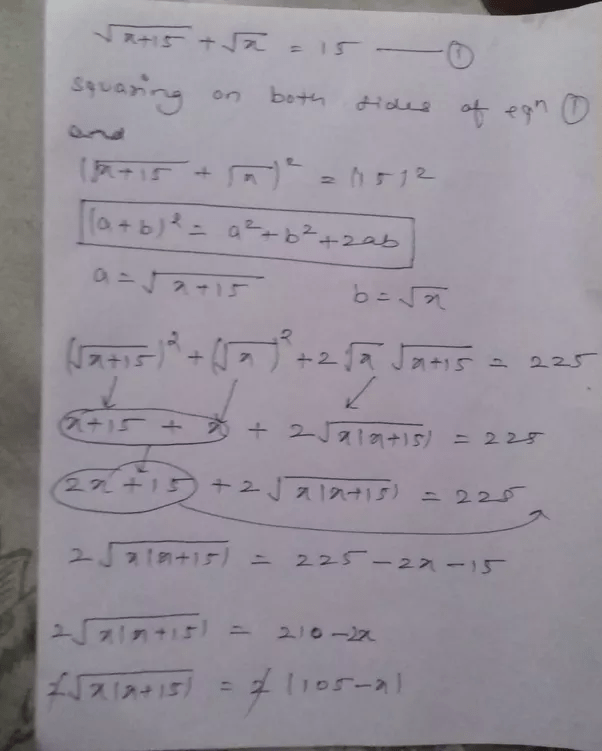 √(x+15) + √x = 15 —— ①
squaring on both sides of eqn ①
and
(√(x+15) + √x)² = (15)²
(a+b)² = a²+b²+2ab
a = √(x+15)    b = √x
(√(x+15))² + (√x)² + 2√x √(x+15) = 225
x+15 + x + 2√(x(x+15)) = 225
2x+15 + 2√(x(x+15)) = 225
2√(x(x+15)) = 225-2x-15
2√(x(x+15)) = 210-2x
2√(x(x+15)) = 2(105-x)